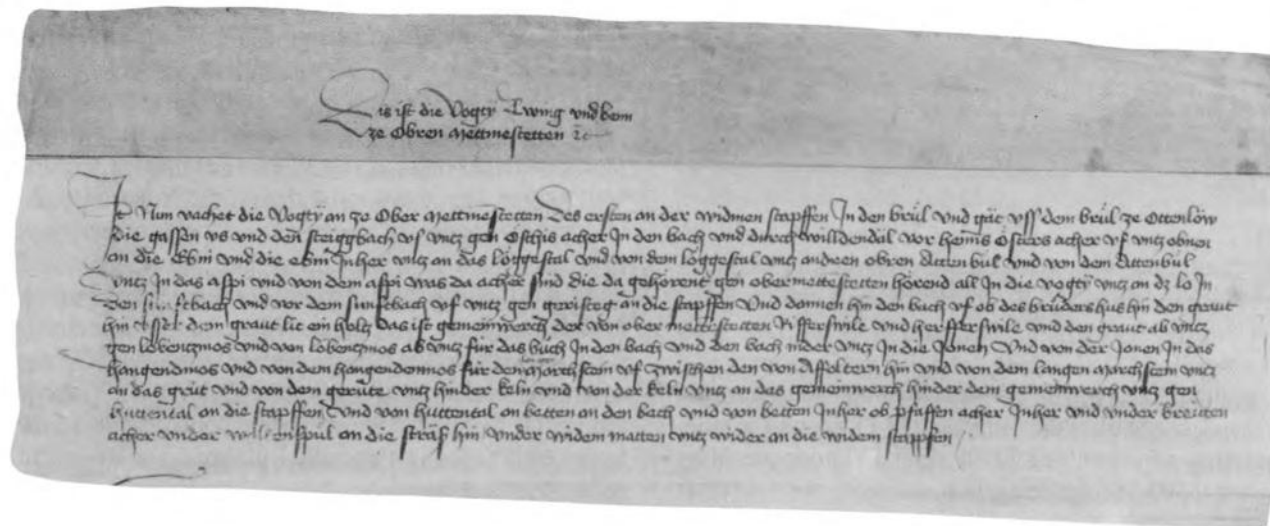 Dis ist die Vogty Twing vnd benn
ze Obren Mettmestetten ꝛc
It Nun vachet die Vogty an ze Ober Mettmestetten Des ersten an der widmen stapffen In den brül vnd gät vss dem brül ze Ottenlöw
die gassen vs vnd den steiggbach vf vntz gen Oschis acher In den bach vnd durch willdendal vor heinis Osters acher vf vntz obnen
an die ebni vnd die ebni Inher vntz an das löggestal vnd von dem löggestal vntz an den obren Attenbül vnd von dem Attenbül
vntz In das aspi vnd von dem aspi was da acher sind die da gehörent gen obermettmestetten hörend all In die vogty vntz an dz lo In
den bach vnd vor dem sunftbach vf vntz gen geristeg an die stapffen Vnd dennen hin den bach vf ob des brüders hus hin den graut
hin vf dem graut lit ein holtz das ist gemeinwerch der von ober mettestetten Rifferswile vnd herfferswile vnd den graut ab vntz
gen lobentzmos vnd von lobentzmos ab vntz für das büch In den bach vnd den bach nider vntz In die Jonen Vnd von der Jonen In das
hangendmos vnd von dem hangendenmos für den marchstein vf zwischen den von Affoltern hin vnd von dem langen marchstein vntz
an das grüt vnd von dem gerüte vntz hinder keln vnd von der keln vntz an das gemeinwerch hinder dem gemeinwerch vntz gen
huttental an die stapffen Vnd von huttental an betten an den bach vnd von betten Inher ob pfaffen acher Inher vnd vnder breiten
acher vnder an die sträß hin vnder widem matten vntz wider an die widem stapffen